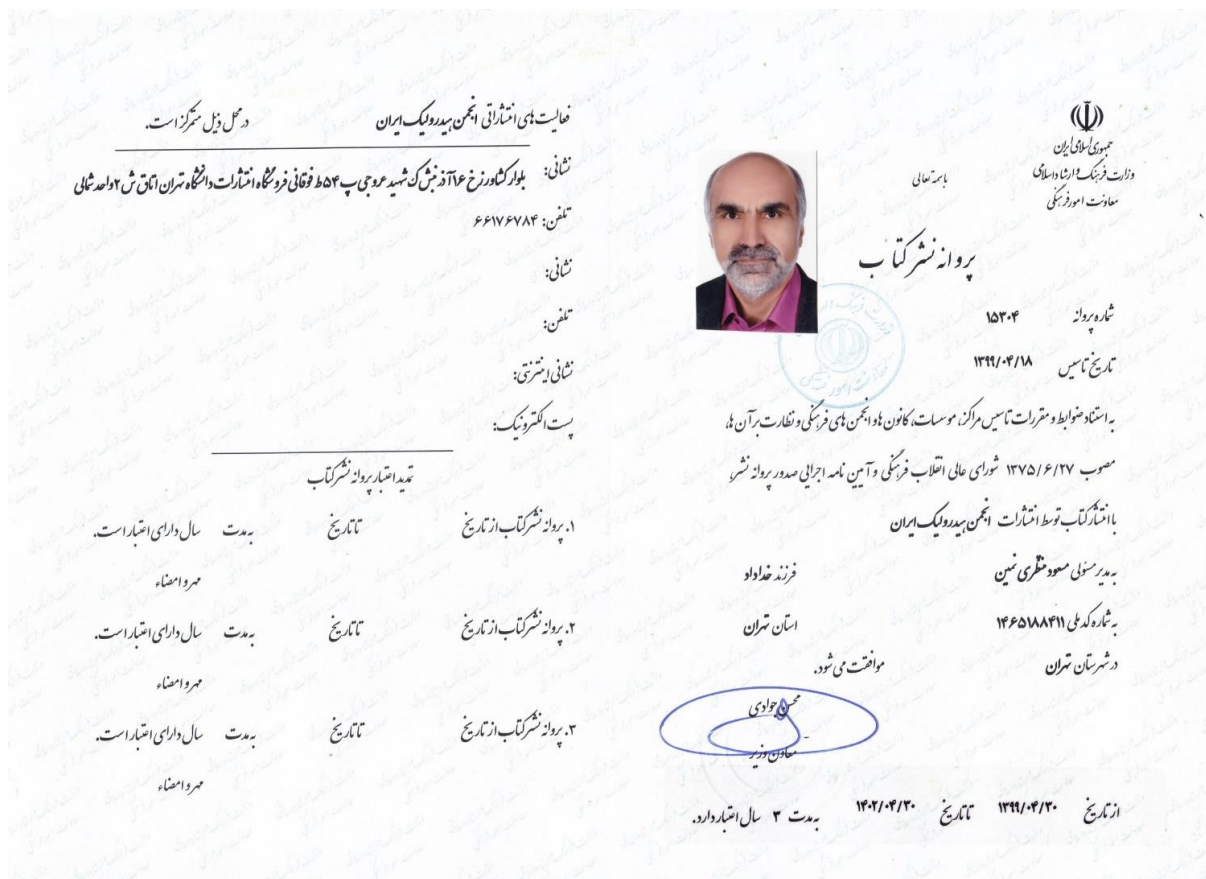 جمهوری اسلامی ایران
وزارت فرهنگ و ارشاد اسلامی
معاونت امور فرهنگی
باسمه تعالی
پروانه نشر کتاب
شماره پروانه ۱۵۳۰۴
تاریخ تاسیس ۱۳۹۹/۰۴/۱۸
به استناد ضوابط و مقررات تاسیس مراکز، موسسات، کانون ها و انجمن های فرهنگی و نظارت بر آن ها،
مصوب ۱۳۷۵/۶/۲۷ شورای عالی انقلاب فرهنگی و آیین نامه اجرایی صدور پروانه نشر،
با انتشار کتاب توسط انتشارات انجمن هیدرولیک ایران
به مدیر مسئولی مسعود منتظری نمین فرزند خداداد
به شماره کد ملی ۱۴۶۵۱۸۸۴۱۱ استان تهران
در شهرستان تهران موافقت می شود.
محسن جوادی
معاون وزیر
از تاریخ ۱۳۹۹/۰۴/۳۰ تا تاریخ ۱۴۰۲/۰۴/۳۰ به مدت ۳ سال اعتبار دارد.
فعالیت های انتشاراتی انجمن هیدرولیک ایران در محل ذیل متمرکز است.
نشانی: بلوار کشاورز خ ۱۶آذر نبش ک شهید عروجی پ ۵۴ ط فوقانی فروشگاه انتشارات دانشگاه تهران اتاق ش ۲ واحد شمالی
تلفن: ۶۶۱۷۶۷۸۴
نشانی:
تلفن:
نشانی اینترنتی:
پست الکترونیک:
تمدید اعتبار پروانه نشر کتاب
۱. پروانه نشر کتاب از تاریخ تا تاریخ به مدت سال دارای اعتبار است.
مهر و امضاء
۲. پروانه نشر کتاب از تاریخ تا تاریخ به مدت سال دارای اعتبار است.
مهر و امضاء
۳. پروانه نشر کتاب از تاریخ تا تاریخ به مدت سال دارای اعتبار است.
مهر و امضاء